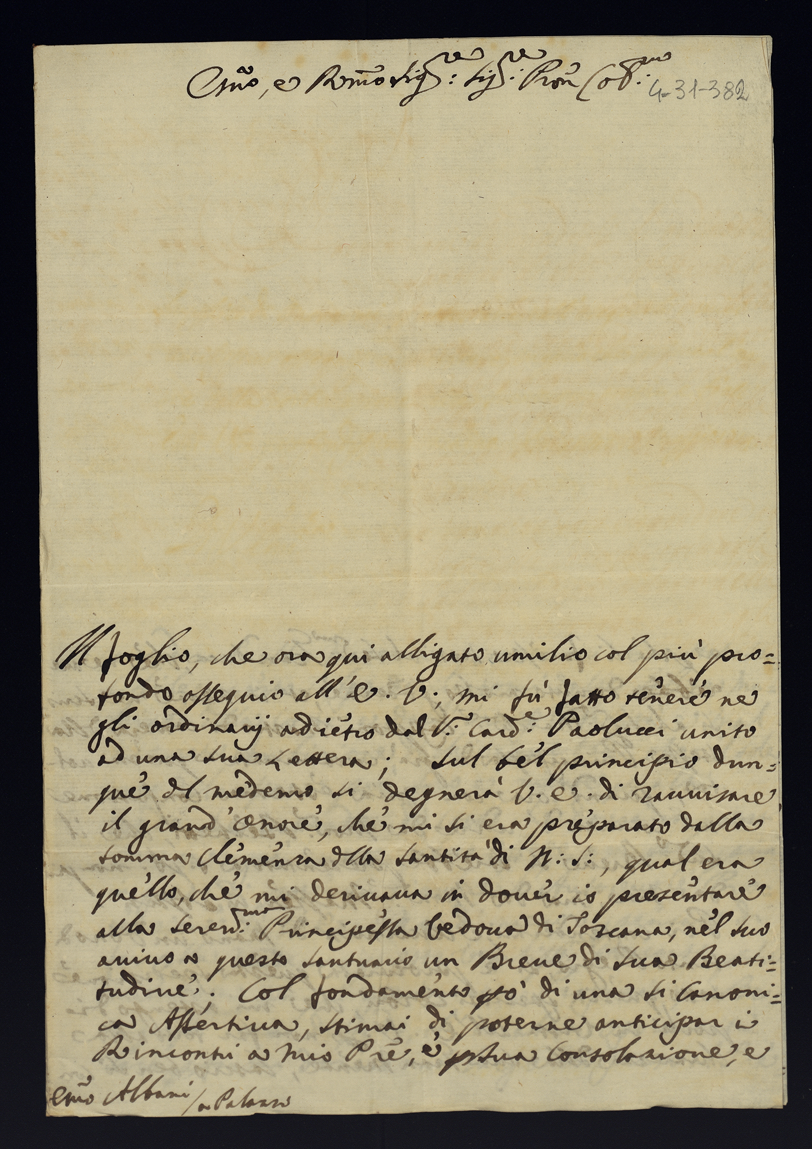 Em̃o, e Rm̃o Sig.re: Sig.re: Pron̄ Col.mo:
4-31-382
Il foglio, che ora qui alligato umilio col più pro=
fondo ossequio all' E. V., mi fù fatto tenere ne
gli ordinarij adietro dal S.r Card.e: Paolucci unito
ad una sua Lettera; Sul bel principio dun=
que del medemo si degnerà V. E. di ravvisare
il grand' onore, che mi si era preparato dalla
somma Clemenza dlla Santità di N: S:, qual era
quello, che mi derivava in dover io presentare
alla Seren.ma: Principessa Vedova di Toscana, nel suo
arivo a questo Santuario un Breve di Sua Beati=
tudine; Col fondamento però di una si Canoni=
ca Assertiva, stimai di poterne anticipar i
Rincontri a Mio Pr̃e, è p Sua Consolazione, e
Em̃o Albani / a Palazzo